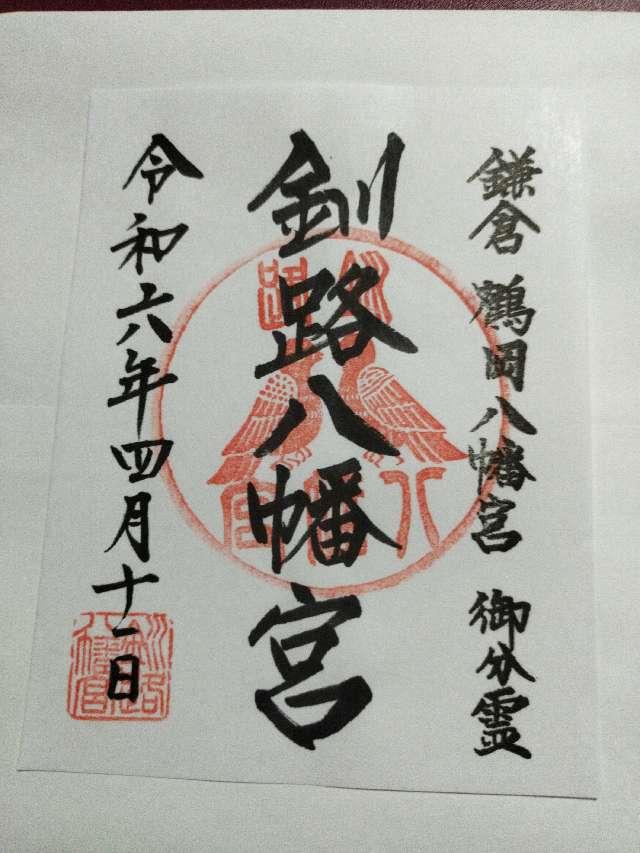 鎌倉 鶴岡八幡宮 御分霊
釧路八幡宮
令和六年四月十一日